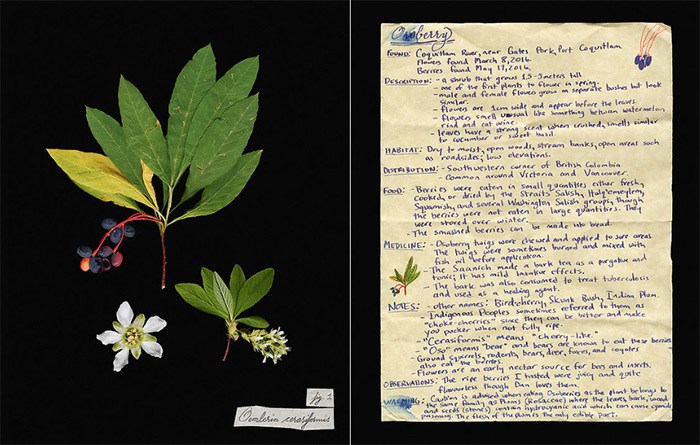 fig 1
Oemleria cerasiformis
Osoberry
FOUND: Coquitlam River, near Gates Park, Port Coquitlam
Flowers found March 8, 2016
Berries found May 17, 2016
DESCRIPTION: - a shrub that grows 1.5-5 meters tall
- one of the first plants to flower in spring.
- male and female flowers grow on separate bushes but look
similar.
- flowers are 1cm wide and appear before the leaves
- flowers smell unusual like something between watermelon
rind and cat urine.
- leaves have a strong scent when crushed, smells similar
to cucumber or sweet basil.
HABITAT: Dry to moist, open woods, stream banks, open areas such
as roadsides; low elevations.
DISTRIBUTION: - Southwestern corner of British Columbia
- Common around Victoria and Vancouver.
FOOD: - Berries were eaten in small quantities either fresh,
cooked, or dried by the Straits Salish, Halq'emeylem,
Squamish, and several Washington Salish groups, though
the berries were not eaten in large quantities. They
were stored over winter.
- The smashed berries can be made into bread.
MEDICINE: - Osoberry twigs were chewed and applied to sore areas
The twigs were sometimes burned and mixed with
fish oil before application.
- The Saanich made a bark tea as a purgative and
tonic; It has mild laxative effects.
- The bark was also consumed to treat tuberculosis
and used as a healing agent.
NOTES: - other names: Birdcherry, Skunk Bush, Indian Plum.
- Indigenous Peoples sometimes referred to them as
"choke-cherries" since they can be bitter and make
you pucker when not fully ripe.
- "Cerasiformis" means "cherry-like."
- "Oso" means "bear" and bears are known to eat these berries
- Ground squirrels, rodents, bears, deer, foxes, and coyotes
also eat the berries.
- Flowers are an early nectar source for bees and insects.
OBSERVATIONS: The ripe berries I tasted were juicy and quite
flavourless though Dan loves them.
WARNING: Caution is advised when eating Osoberries as the plant belongs to
the same family as Plums (Rosaceae) where the leaves, bark, wood
and seeds (stones) contain hydrocyanic acid which can cause cyanide
poisoning. The flesh of the plum is the only edible part.